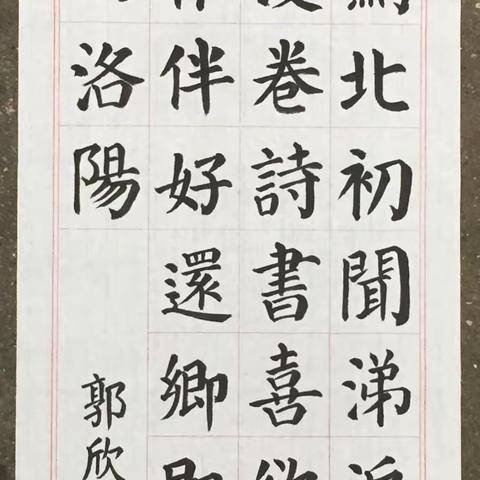 北初聞涕
卷詩書喜欲
伴好還卿即
洛陽
郭欣